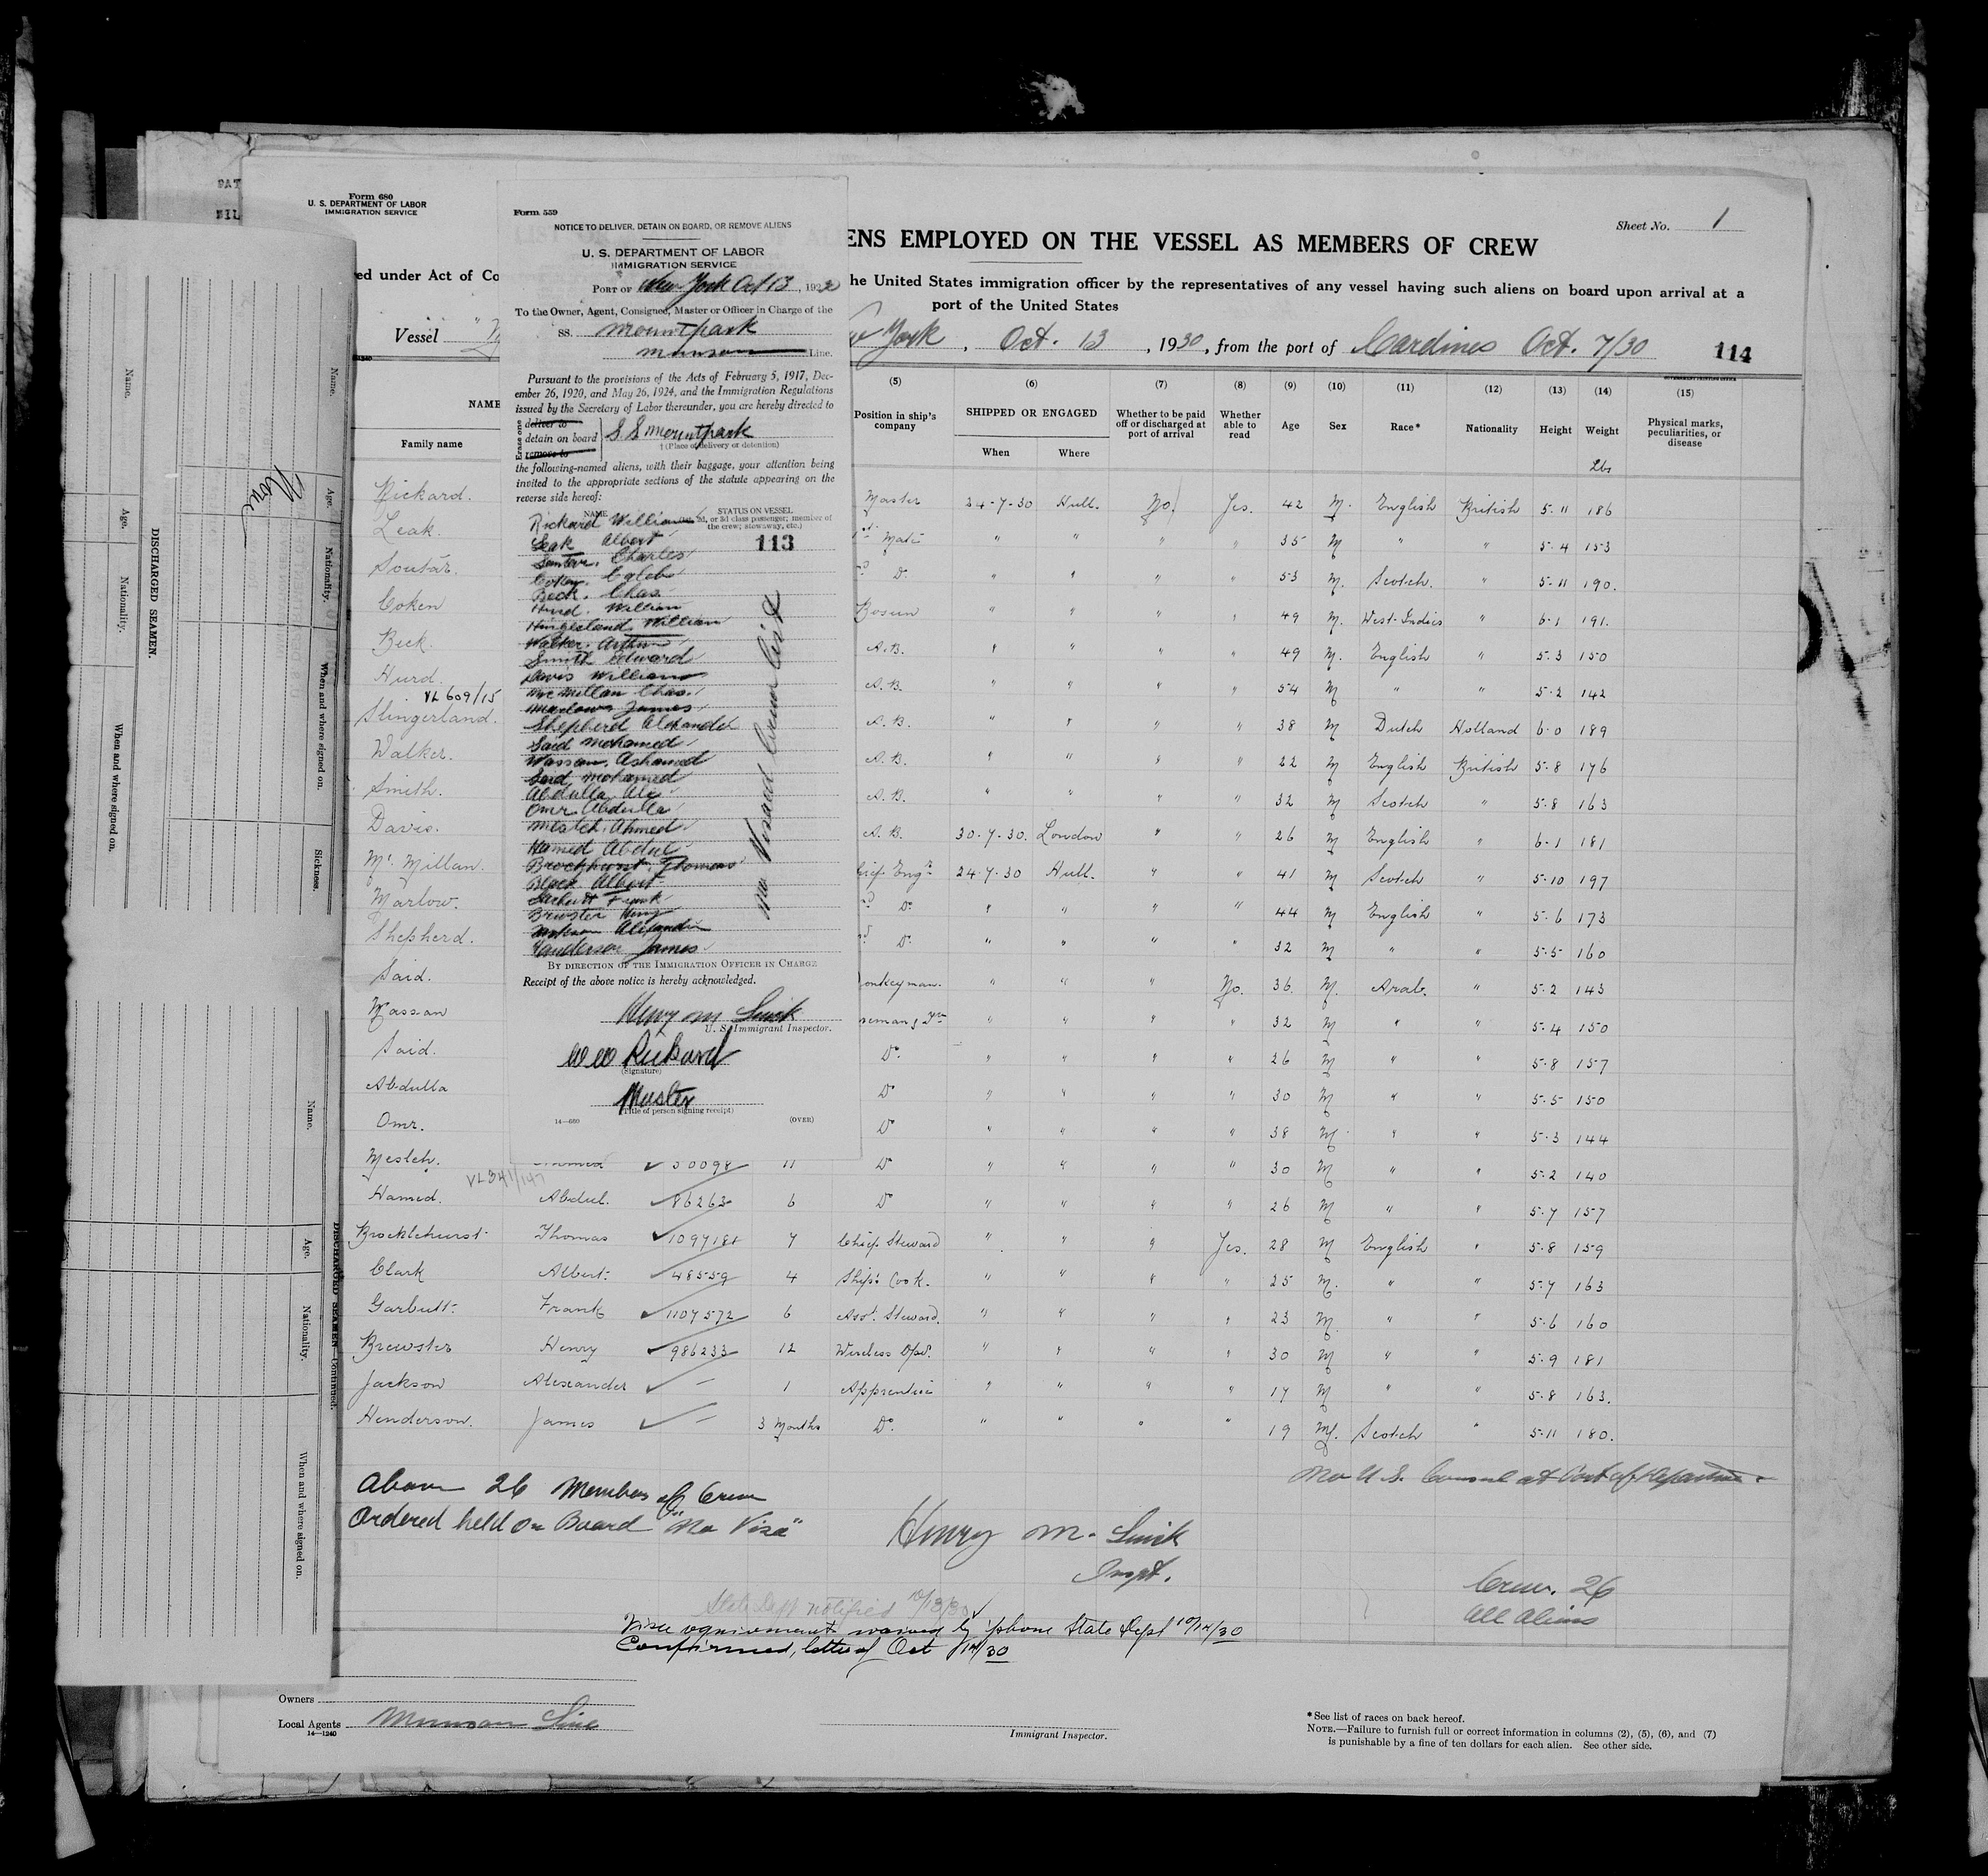 Form 680
U. S. DEPARTMENT OF LABOR
IMMIGRATION SERVICE
Sheet No. 1
ENS EMPLOYED ON THE VESSEL AS MEMBERS OF CREW
ed under Act of Co
he United States immigration officer by the representatives of any vessel having such aliens on board upon arrival at a
port of the United States
Vessel
York, Oct. 13, 1930, from the port of Cardines Oct. 7/30
114
Form 559
NOTICE TO DELIVER, DETAIN ON BOARD, OR REMOVE ALIENS
U. S. DEPARTMENT OF LABOR
IMMIGRATION SERVICE
PORT OF New York Oct 13, 1930
To the Owner, Agent, Consigned, Master or Officer in Charge of the
SS. Mountpark
Munson Line.
Pursuant to the provisions of the Acts of February 5, 1917, Dec-
ember 26, 1920, and May 26, 1924, and the Immigration Regulations
issued by the Secretary of Labor thereunder, you are hereby directed to
Erase one
deliver to
detain on board
remove to
S. S Mountpark
(Place of delivery or detention)
the following-named aliens, with their baggage, your attention being
invited to the appropriate sections of the statute appearing on the
reverse side hereof:
NAME
STATUS ON VESSEL
2d, or 3d class passenger; member of
the crew; stowaway, etc.)
113
Rickard William
Leak Albert
Charles
Beck. Chas
Hurd. William
William
Walker. Arthur
Smith Edward
Davis William
McMillan Chas.
Marlow James
Shepherd Alexander
Said Mohamed
Wassan.
Said Mohamed
Abdulla Ali
Omr Abdulla
Mesleh. Ahmed
Hamed Abdul
Brocklhurst. Thomas
Albert
Frank
Brewster Henry
Alexander
Henderson James
No Visaed Crew List
BY DIRECTION OF THE IMMIGRATION OFFICER IN CHARGE
Receipt of the above notice is hereby acknowledged.
Henry M
U. S. Immigrant Inspector.
W Rickard
(Signature)
Master
(Title of person signing receipt)
14—680
(OVER)
NAME
Family name
(5) Position in ship's company
(6) SHIPPED OR ENGAGED When Where
(7) Whether to be paid off or discharged at port of arrival
(8) Whether able to read
(9) Age
(10) Sex
(11) Race*
(12) Nationality
(13) Height
(14) Weight Lbs
(15) Physical marks, peculiarities, or disease
Rickard. Master 24-7-30 Hull. No. Yes. 42 M. English British 5.11 186
Leak. Mate " " " " 35 M " " 5.4 153
Soutar. Do. " " " " 53 M. Scotch. " 5.11 190.
Coken Bosun " " " " 49 M. West-Indies " 6.1 191.
Beck. A.B. " " " " 49 M. English " 5.3 150
Hurd. A.B. " " " " 54 M " " 5.2 142
VL 609/15
Slingerland. A.B. " " " " 38 M Dutch Holland 6.0 189
Walker. A.B. " " " " 22 M English British 5.8 176
Smith. A.B. " " " " 32 M Scotch " 5.8 163
Davis. A.B. 30-7-30. London " " 26 M English " 6.1 181
Mc Millan. Engr 24-7-30 Hull. " " 41 M Scotch " 5.10 197
Marlow. Do " " " " 44 M English " 5.6 173
Shepherd. Do. " " " " 32 M " " 5.5 160
Said. onkeyman. " " " No. 36. M. Arab. " 5.2 143
Wassan " " " " 32 M " " 5.4 150
Said. Do. " " " " 26 M " " 5.8 157
Abdulla Do " " " " 30 M " " 5.5 150
Omr. Do " " " " 38 M " " 5.3 144
Mesleh. 30098 11 Do " " " " 30 M " " 5.2 140
Hamed. Abdul. 86263 6 Do " " " " 26 M " " 5.7 157
Brocklehurst Thomas 1097181 7 Chief Steward " " " Yes. 28 M English " 5.8 159
Clark Albert 48559 4 Ship's Cook. " " " " 25 M. " " 5.7 163
Garbutt Frank 1107572 6 Asst. Steward. " " " " 23 M. " " 5.6 160
Brewster Henry 986233 12 Wireless Opr. " " " " 30 M " " 5.9 181
Jackson Alexander – 1 Apprentice " " " " 17 M " " 5.8 163.
Henderson. James – 3 Months Do. " " " " 19 M. Scotch " 5.11 180.
No U.S. Consul at Port of Departure
Above 26 Members of Crew
Ordered held on Board "No Visa"
Henry M.
Inspt.
Crew. 26
All Aliens
State Dept notified 10/13/30
Visa requirement waived by 'phone State Dept 10/14/30
Confirmed, letter of Oct 14/30
Owners
Local Agents Munson Line
14—1240
Immigrant Inspector.
*See list of races on back hereof.
NOTE.—Failure to furnish full or correct information in columns (2), (5), (6), and (7)
is punishable by a fine of ten dollars for each alien. See other side.
DISCHARGED SEAMEN.
Name. Age. Nationality. When and where signed on.
Name. Age. Nationality. When and where signed on. Sickness.
None
DISCHARGED SEAMEN—Continued.
Name. Age. Nationality. When and where signed on.